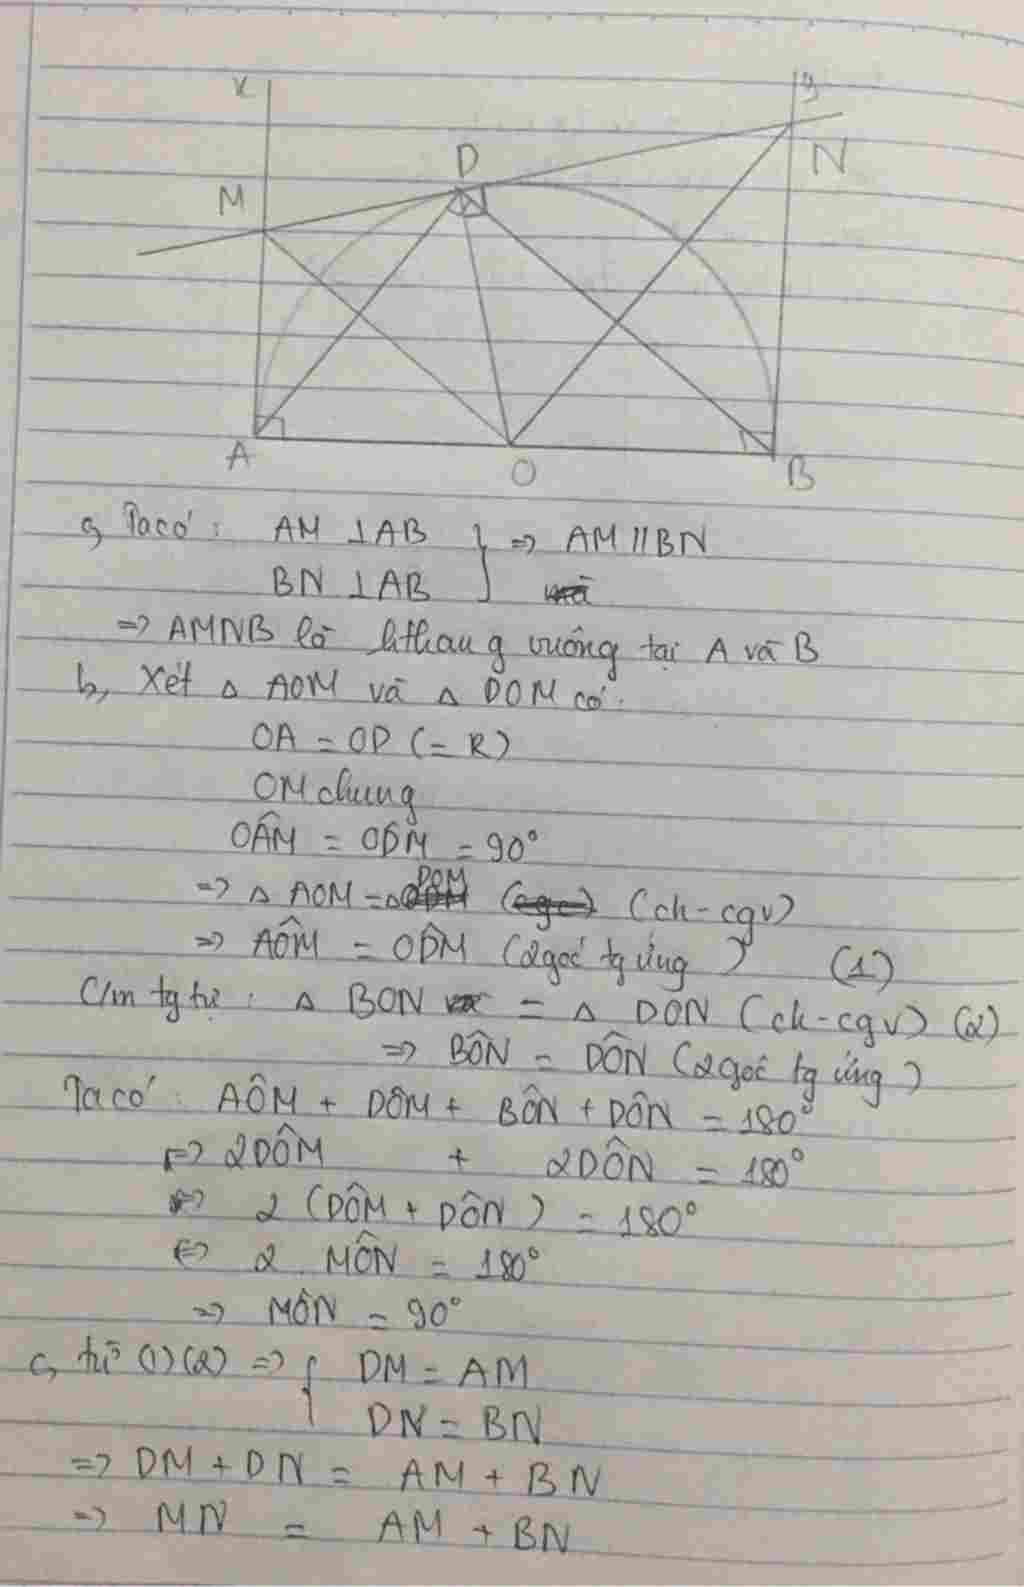 x
y
D
N
M
A
O
B
a, Ta có : AM ⊥ AB } => AM // BN
BN ⊥ AB
=> AMNB là hthang vuông tại A và B
b, Xét △ AOM và △ DOM có:
OA = OD (= R)
OM chung
OÂM = OD̂M = 90°
=> △ AOM = △ DOM (ch-cgv)
=> AÔM = OD̂M (2 góc tg ứng) (1)
C/m tg tự : △ BON = △ DON (ch-cgv) (2)
=> BÔN = DÔN (2 góc tg ứng)
Ta có : AÔM + DÔM + BÔN + DÔN = 180°
<=> 2DÔM + 2DÔN = 180°
<=> 2 (DÔM + DÔN) = 180°
<=> 2 MÔN = 180°
=> MÔN = 90°
c, từ (1)(2) => { DM = AM
DN = BN
=> DM + DN = AM + BN
=> MN = AM + BN